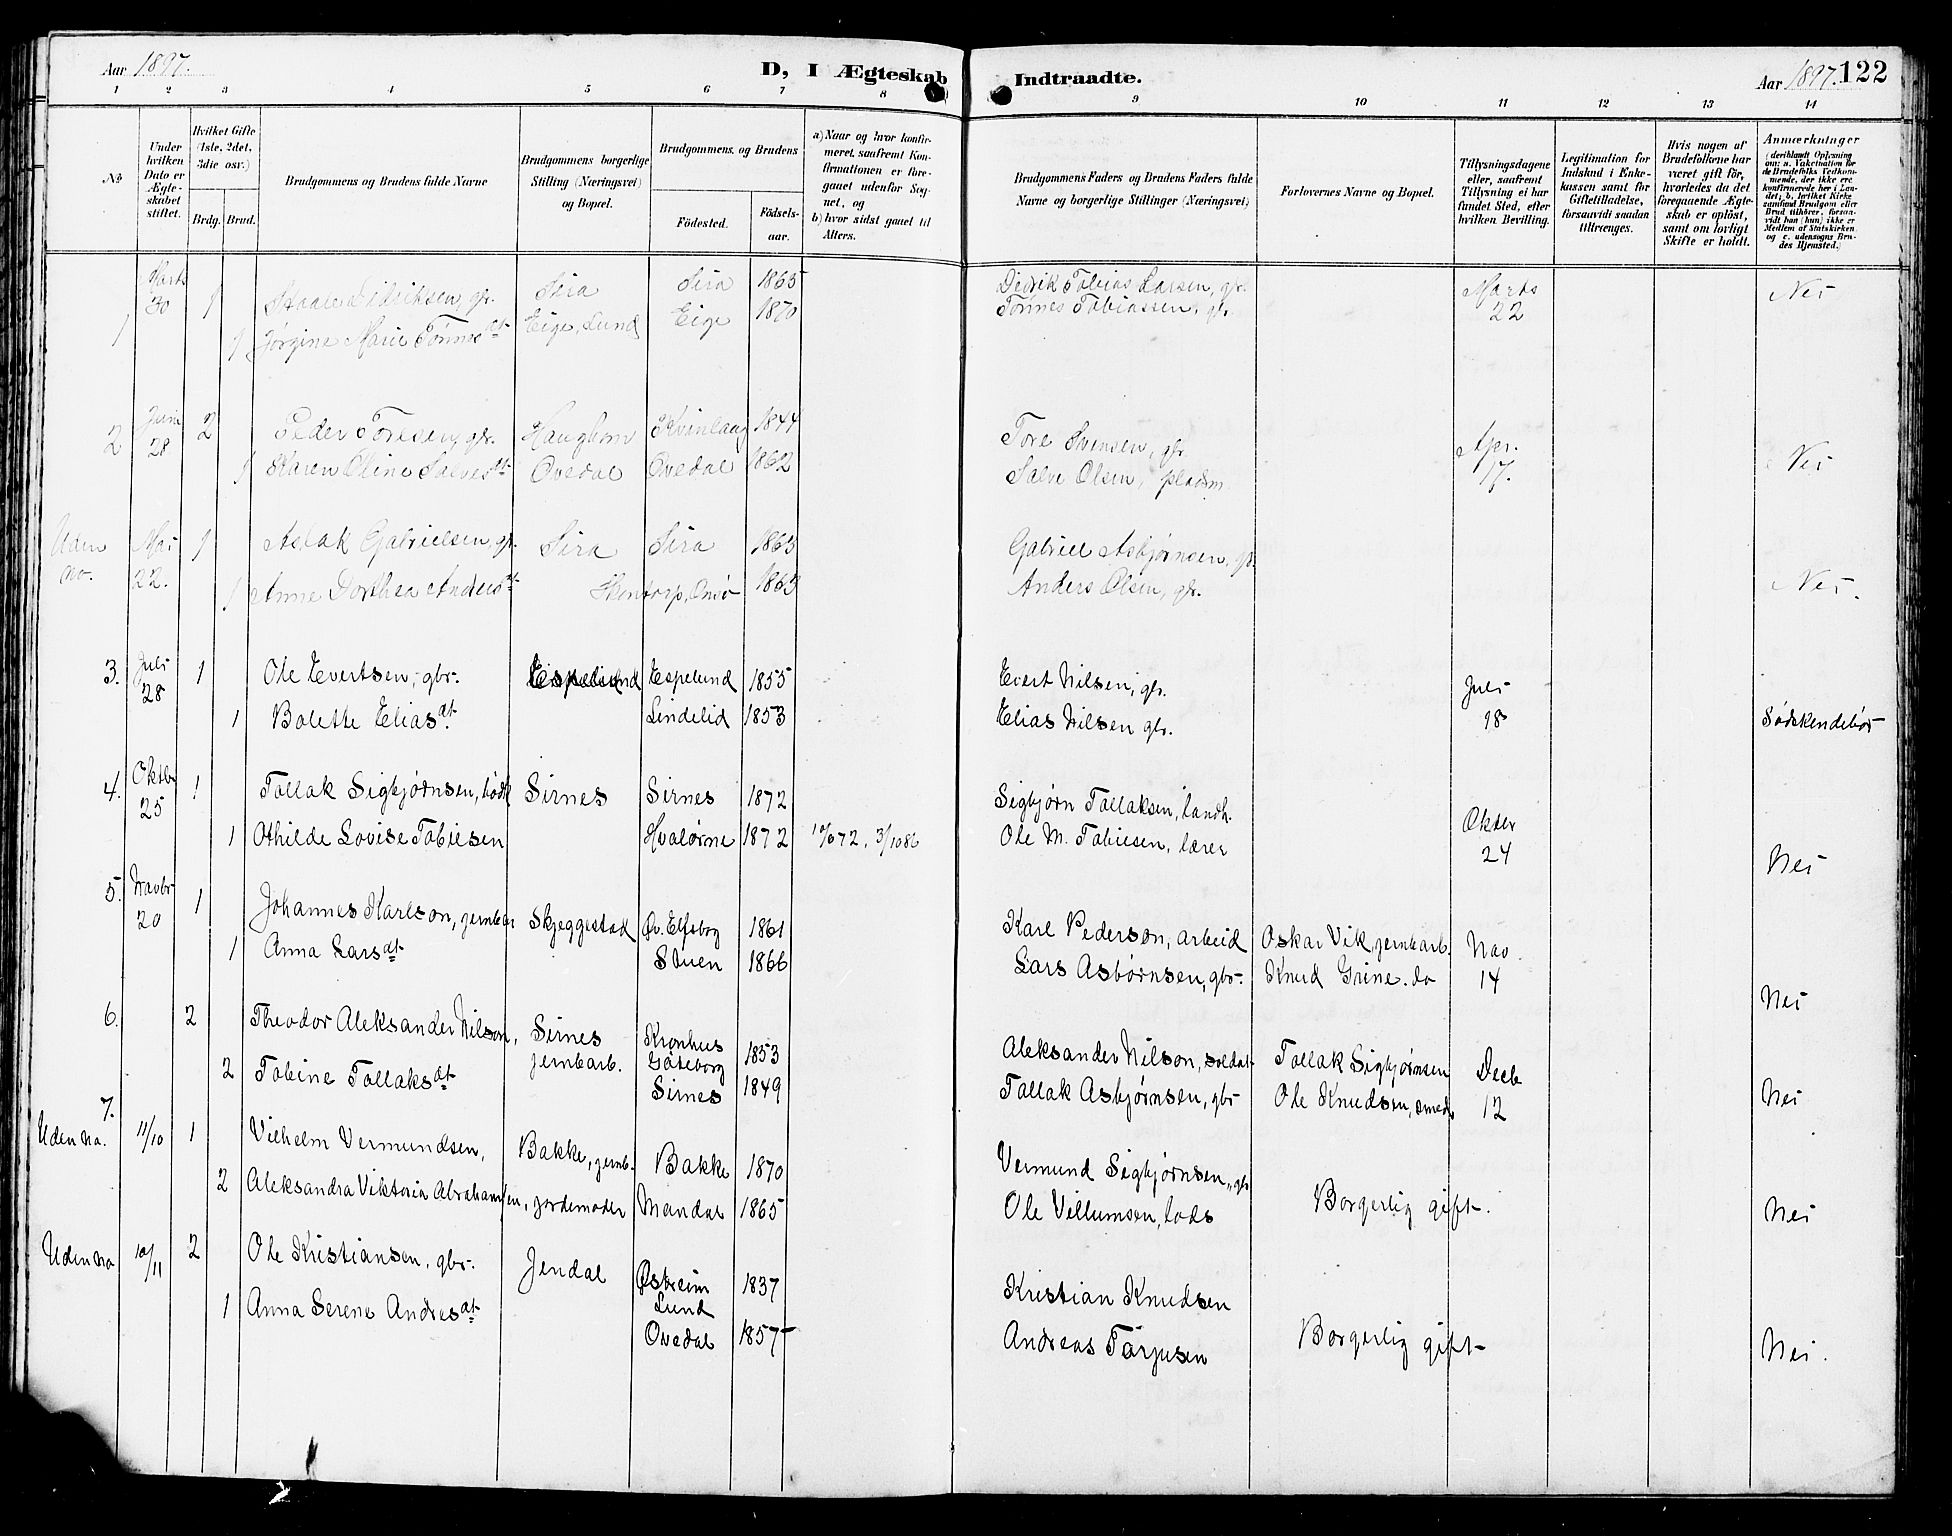 Aar 1897.
D, I Ægteskab Indtraadte.
Aar 1897. 122
1 2 3 4 5 6 7 8 9 10 11 12 13 14
No
Under hvilken Dato er Ægteskabet stiftet.
Hvilket Gifte (1ste, 2det, 3die osv.)
Brdg. Brud.
Brudgommens og Brudens fulde Navne
Brudgommens borgerlige Stilling (Næringsvei) og Bopæl.
Brudgommens og Brudens
Fødested. Fødselsaar.
a) Naar og hvor konfirmeret, saafremt Konfirmationen er foregaaet udenfor Sognet, og
b) hvor sidst gaaet til Alters.
Brudgommens Faders og Brudens Faders fulde Navne og borgerlige Stillinger (Næringsvei)
Forlovernes Navne og Bopæl.
Tillysningsdagene eller, saafremt Tillysning ei har fundet Sted, efter hvilken Bevilling.
Legitimation for Indskud i Enkekassen samt for Giftetilladelse, forsaavidt saadan tiltrænges.
Hvis nogen af Brudefolkene har været gift før, hvorledes da det foregaaende Ægteskab er opløst, samt om lovligt Skifte er holdt.
Anmærkninger
(deriblandt Oplysning om: a. Vakcination for de Brudefolks Vedkommende, der ikke ere konfirmerede her i Landet; b. hvilket Kirkesamfund Brudgom eller Brud tilhører, forsaavidt han (hun) ikke er Medlem af Statskirken og c. udensogns Brudes Hjemsted.)
1 Marts 30 1 Didriksen, gbr. Sira Sira 1865 Didrik Tobias Larsen, gbr. Marts 22 Nei
1 Jørgine Marie Tønnesdt Eige, Lund Eige 1870 Tønnes Tobiassen, gbr.
2 Juni 28 2 Peder Toresen, gbr. Haughom Kvinlaug 1844 Tore Svensen, gbr. Apr. 17. Nei
1 Karen Oline Salvesdt Ovedal Ovedal 1862 Salve Olsen, pladsm.
Uden no. Mai 22. 1 Aslak Gabrielsen, gbr. Sira Sira 1865 Gabriel Asbjørnsen, gbr. Nei.
1 Anne Dorthea Andersdt Onsø 1863 Anders Olsen, gbr.
3. Juli 28 1 Ole Evertsen, gbr. Espelund Espelund 1855 Evert Nilsen, gbr. Juli 18 Sødskendebør
1 Bolette Eliasdt. Lindelid 1853 Elias Nilsen gbr.
4. Oktb 25 1 Tallak Sigbjørnsen, bødk Sirnes Sirnes 1872 Sigbjørn Tallaksen, landh. Okter 24 Nei
1 Othilde Lovise Tobiesen Hvalørne 1872 3/10 86 Ole M. Tobiesen, lærer
5. Novbr 20 1 Johannes Karlson, jernbar Skjeggestad Øv. Elfsborg 1861 Karl Pederson, arbeid Oskar Vik, jernbarb. Nov. 14 Nei
1 Anna Larsdt Stuen 1866 Lars Asbørnsen, gbr. Knud Grine. do
6. 2 Theodor Aleksander Nilson, Sirnes jernbarb. Kronhus Gøteborg 1853 Aleksander Nilson, soldat Tallak Sigbjørnsen Decb 12 Nei
2 Tobine Tallaksdt Sirnes 1849 Tallak Asbjørnsen, gbr Ole Knudsen, smed
7.
Uden No. 11/10 1 Vilhelm Vermundsen, Bakke, jernb. Bakke 1870 Vermund Sigbjørnsen, gbr Borgerlig gift. Nei
2 Aleksandra Viktoria Abrahamsen, jordemoder Mandal 1865 Ole Villumsen, lods
Uden No 10/11 2 Ole Kristiansen, gbr. Jendal Østreim Lund 1837 Kristian Knudsen Borgerlig gift Nei.
1 Anna Serene Andreasdt Ovedal 1857 Andreas Tarjusen